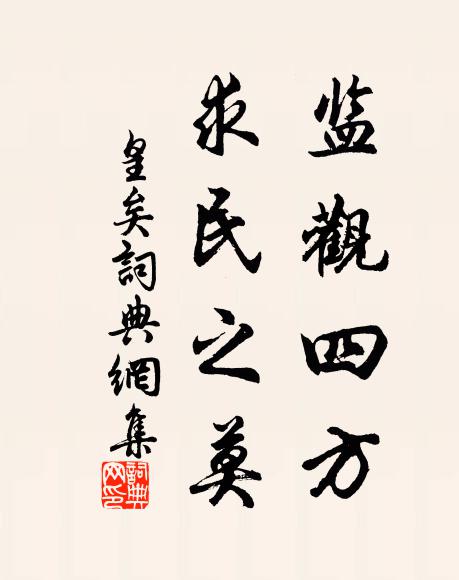 监觀四方
求民之莫
皇矣詞典網集
詞典網印